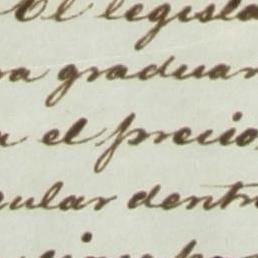 El legisla
ra graduar
a el precio,
cular dentr